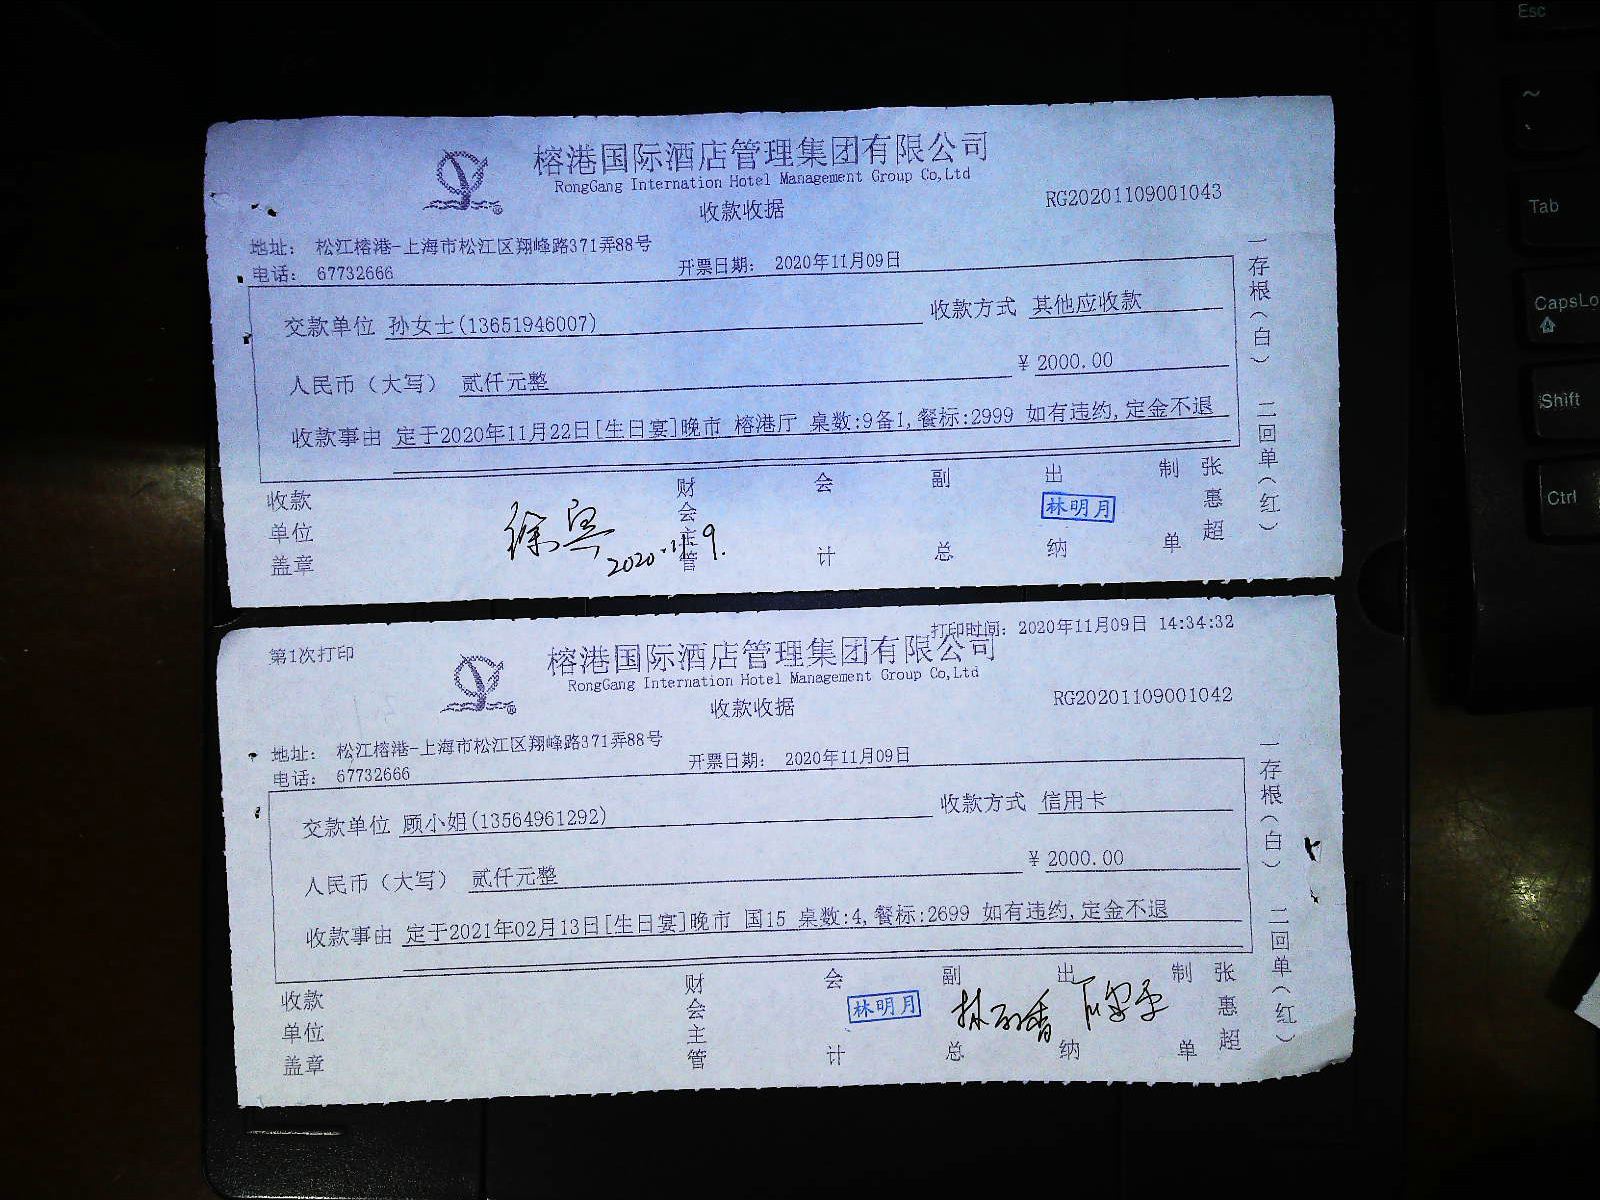 榕港国际酒店管理集团有限公司
RongGang Internation Hotel Management Group Co,Ltd
收款收据
RG20201109001043
地址： 松江榕港-上海市松江区翔峰路371弄88号
电话： 67732666
开票日期： 2020年11月09日
交款单位 孙女士(13651946007)
收款方式 其他应收款
人民币（大写） 贰仟元整
¥ 2000.00
收款事由 定于2020年11月22日[生日宴]晚市 榕港厅 桌数:9备1,餐标:2999 如有违约,定金不退
收款单位盖章
财会主管
会计
副总
出纳
林明月
制单
张惠超
2020.11.9.
一存根（白） 二回单（红）
第1次打印
打印时间：2020年11月09日 14:34:32
榕港国际酒店管理集团有限公司
RongGang Internation Hotel Management Group Co,Ltd
收款收据
RG20201109001042
地址： 松江榕港-上海市松江区翔峰路371弄88号
电话： 67732666
开票日期： 2020年11月09日
交款单位 顾小姐(13564961292)
收款方式 信用卡
人民币（大写） 贰仟元整
¥ 2000.00
收款事由 定于2021年02月13日[生日宴]晚市 国15 桌数:4,餐标:2699 如有违约,定金不退
收款单位盖章
财会主管
会计
林明月
副总
出纳
制单
张惠超
一存根（白） 二回单（红）
Esc
~
Tab
CapsLo
Shift
Ctrl